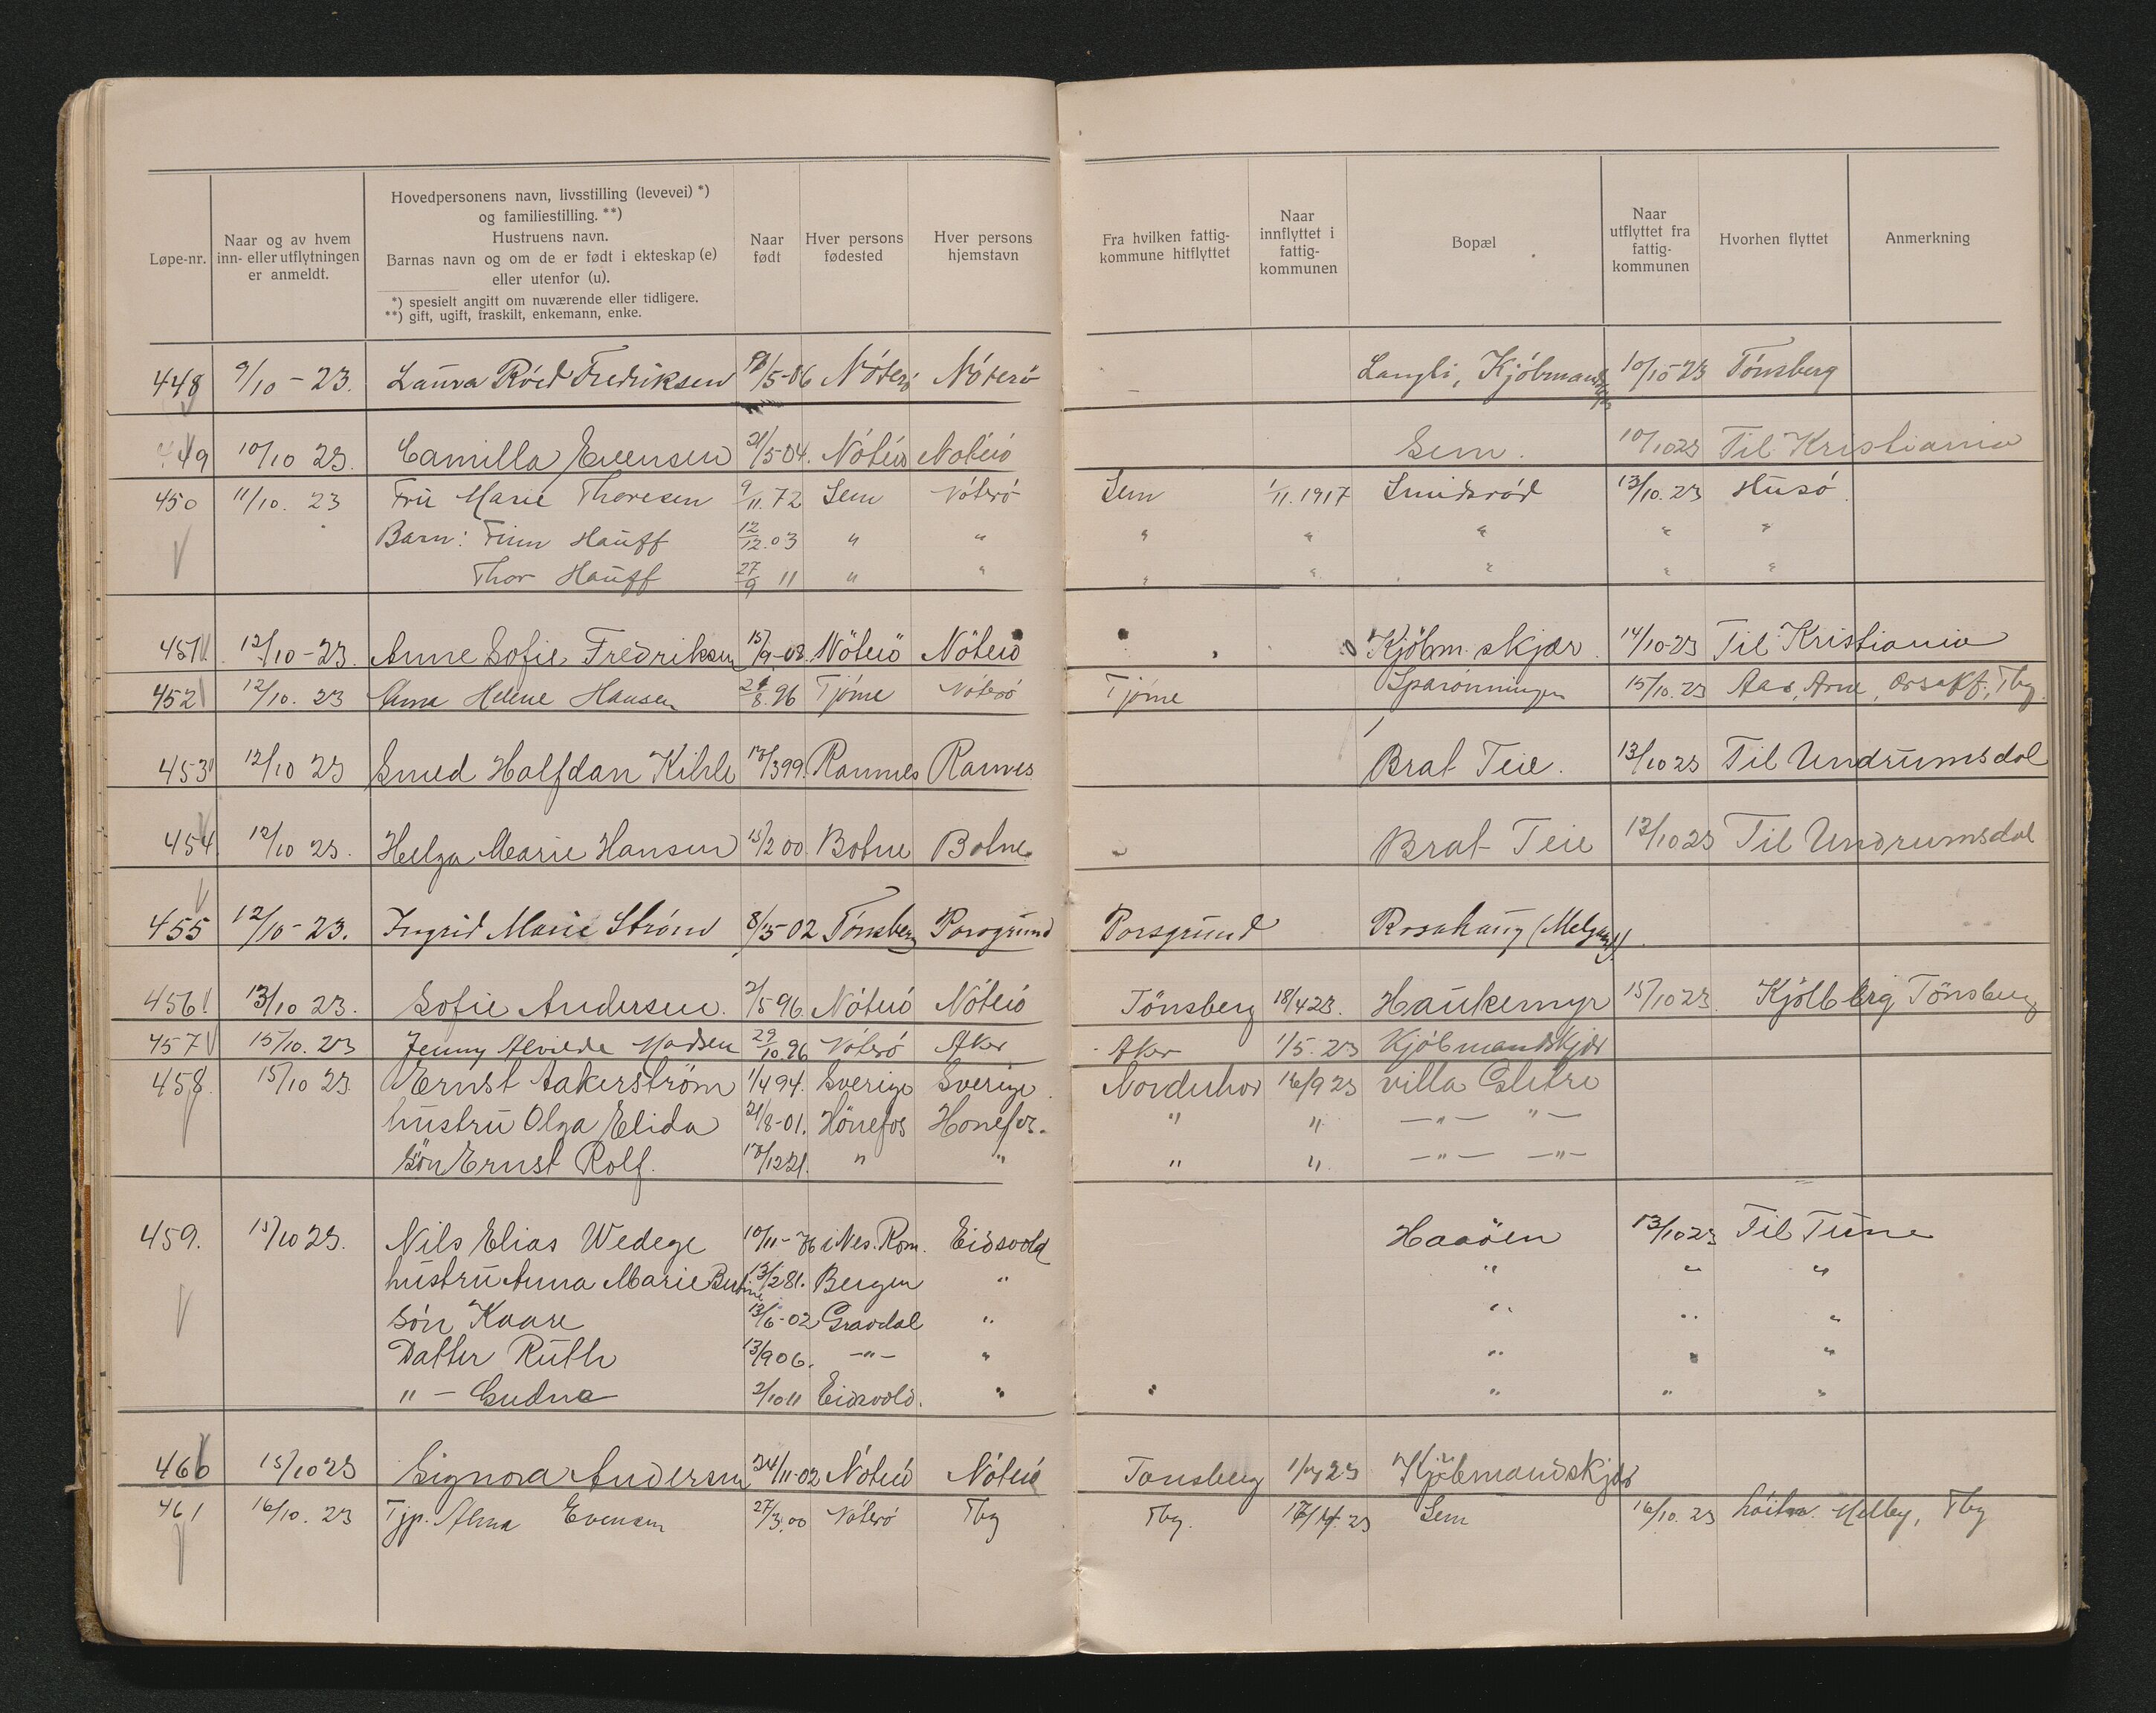 Løpe-nr.
Naar og av hvem inn- eller utflytningen er anmeldt.
Hovedpersonens navn, livsstilling (levevei) *)
og familiestilling. **)
Hustruens navn.
Barnas navn og om de er født i ekteskap (e)
eller utenfor (u).
*) spesielt angitt om nuværende eller tidligere.
**) gift, ugift, fraskilt, enkemann, enke.
Naar født
Hver persons fødested
Hver persons hjemstavn
Fra hvilken fattigkommune hitflyttet
Naar innflyttet i fattigkommunen
Bopæl
Naar utflyttet fra fattigkommunen
Hvorhen flyttet
Anmerkning
448 9/10-23. Laura Röed Fredriksen /5-06 Nóterö Nóterö Langli, 10/10-23 Tónsberg
449 10/10 23. Camilla Evensen 21/5-04. Nóterö Nóterö Sem. 10/10 23 Til Kristiania
450 11/10. 23 Fru Marie Thoresen 9/11. 72 Sem Nóterö Sem 1/11. 1917 Smidsród 13/10. 23 Husó.
Barn: Finn Hauff 12/12.03 " " " " " " "
Thor Hauff 27/9 11 " " " " " " "
451 12/10-23. Anne Sofie Fredriksen 15/9-08. Nöterö Nöterö Kjöbm. skjær 14/10-23 Til Kristiania
452 12/10. 23 Anna Helene Hansen 8.96 Tjóme Nóteró Tjóme 15/10. 23 Aas, Arne, Tbg.
453 12/10 23 Smed Halfdan /3 99. Ramnes Ramnes Brat Teie. 13/10 23 Til Undrumsdal
454 12/10 23. Helga Marie Hansen 15/2 00. Botne Botne Brat Teie 12/10 23 Til Undrumsdal
455 12/10-23. Ingrid Marie Ström 8/5-02 Tónsberg Porsgrund Porsgrund Rosahaug
456 13/10 23. Sofie Andersen. 2/5 96 Nóteró Nóteró Tönsberg 18/4 23. Haukemyr 15/10 23. Kjölberg, Tönsberg
457 15/10. 23 Jenny Alvilde Madsen 29/10.96 Nóteró Aker Aker 1/5. 23 Kjöbmandskjær
458. 15/10 23 Ernst Aakerström 1/4 94. Sverige Sverige Norderhov 16/9 23 villa Glitre
hustru Olga Elida 21/8-01. Hönefos Honefos. " " —"— "—
Sön Ernst Rolf. /12 21. " " " " —"— —"—
459. 15/10 23. Nils Elias Wedege 10/11-76 i Nes. Rom. Eidsvold Haaöen 13/10 23 Til Tune
hustru Anna Marie 13/2 81. Bergen " " " "
Sön Kaare 13/6-02 Gravdal " " " "
Datter Ruth 13/9 06. —"— " " " "
" — Gudna 2/10 11 Eidsvold. " " " " "
460 15/10 23 Signora Andersen 24/11-02 Nóteró Nóteró Tonsberg Kjöbmandskjær
461 16/10. 23 Tjp. Alma Evensen 27/3.00 Nóteró Tbg Tbg. Sem 16/10. 23 Melby, Tbg